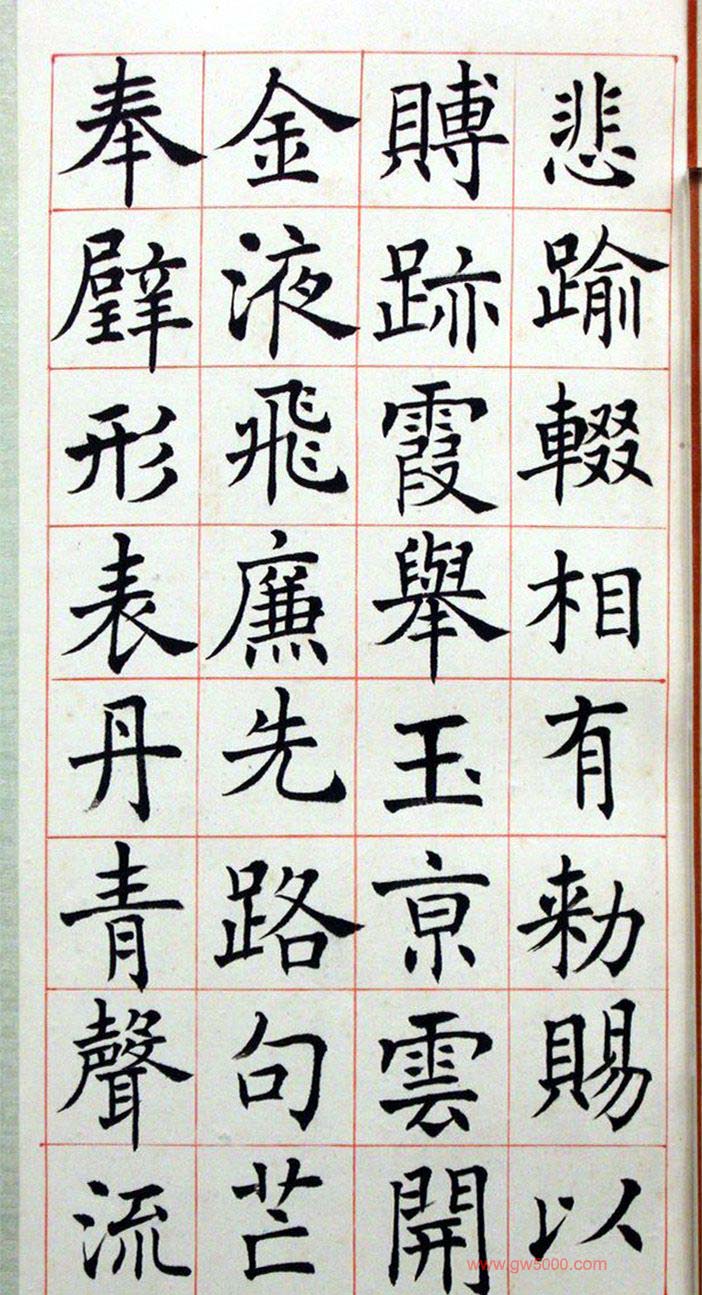 悲踰輟相有勑賜以
賻跡霞舉玉京雲開
金液飛廉先路句芒
奉璧形表丹青聲流
www.gw5000.com